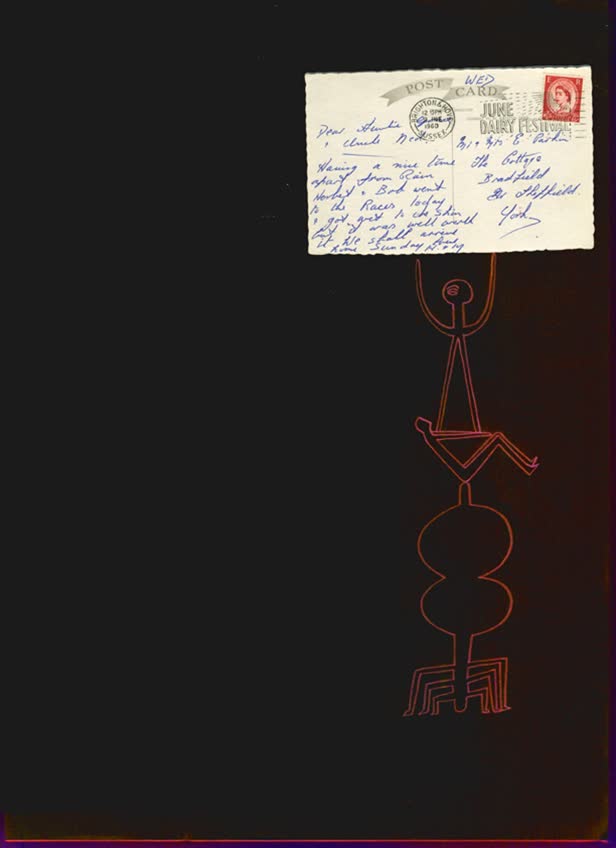 POST CARD
WED
BRIGHTON & HOVE
12 15 PM
1963
SUSSEX
JUNE
DAIRY FESTIVAL
Dear Auntie
& Uncle Ned
Having a nice time
apart from Rain
Herbert & Bob went
to the Races today
& got wet to the skin
but it was well worth
it We shall arrive
home Sunday
Mr & Mrs E. Parkin
The Cottage
Bradfield
Nr Sheffield
York